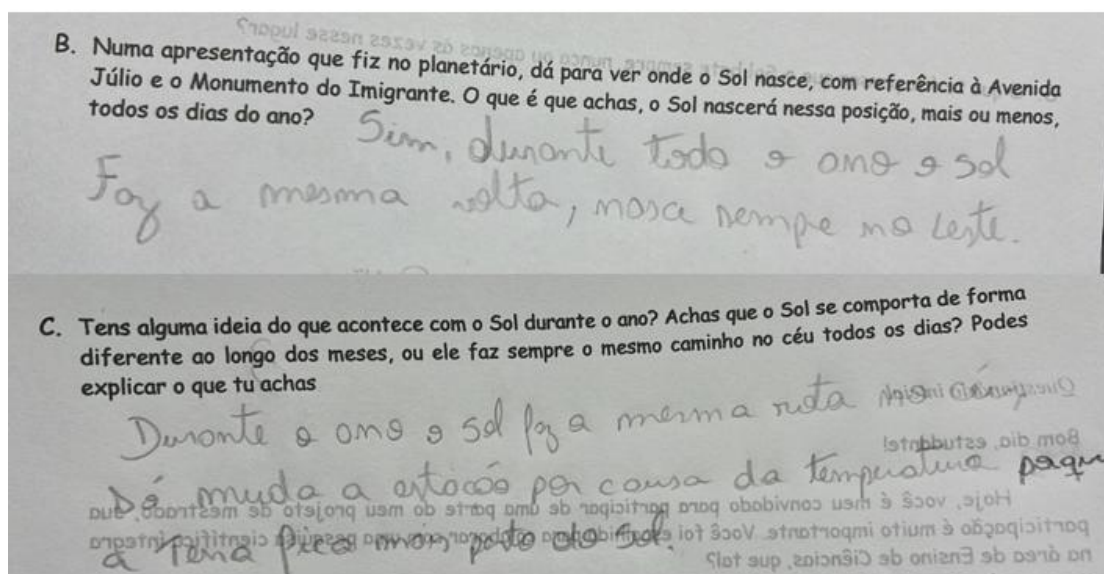 B. Numa apresentação que fiz no planetário, dá para ver onde o Sol nasce, com referência à Avenida
Júlio e o Monumento do Imigrante. O que é que achas, o Sol nascerá nessa posição, mais ou menos,
todos os dias do ano?
Sim, durante todo o ano o sol
Faz a mesma volta, nasce sempre no Leste.
C. Tens alguma ideia do que acontece com o Sol durante o ano? Achas que o Sol se comporta de forma
diferente ao longo dos meses, ou ele faz sempre o mesmo caminho no céu todos os dias? Podes
explicar o que tu achas
Durante o ano o sol faz a mesma rota
Só muda a estação por causa da temperatura porque
a Terra fica mais perto do sol.